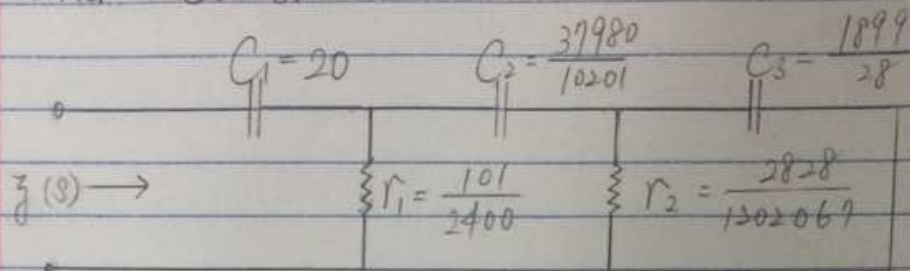 C₁ = 20 C₂ = 37980/10201 C₃ = 1899/28
z(s) → r₁ = 101/2400 r₂ = 2828/1202067